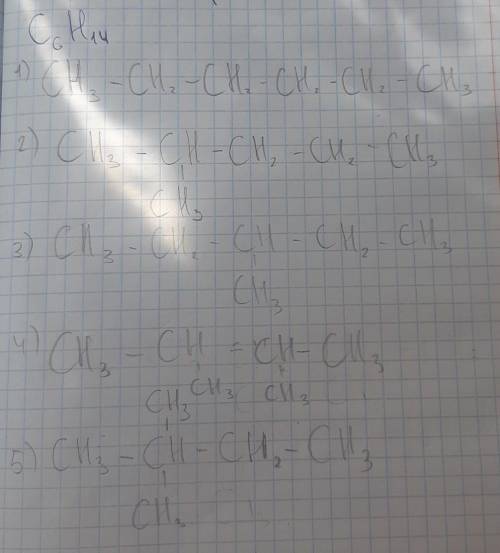 C₆H₁₄
1) CH₃ – CH₂ – CH₂ – CH₂ – CH₂ – CH₃
2) CH₃ – CH – CH₂ – CH₂ – CH₃
CH₃
3) CH₃ – CH₂ – CH – CH₂ – CH₃
CH₃
4) CH₃ – CH = CH – CH₃
CH₃ CH₃
CH₃
5) CH₃ – CH – CH₂ – CH₃
CH₃